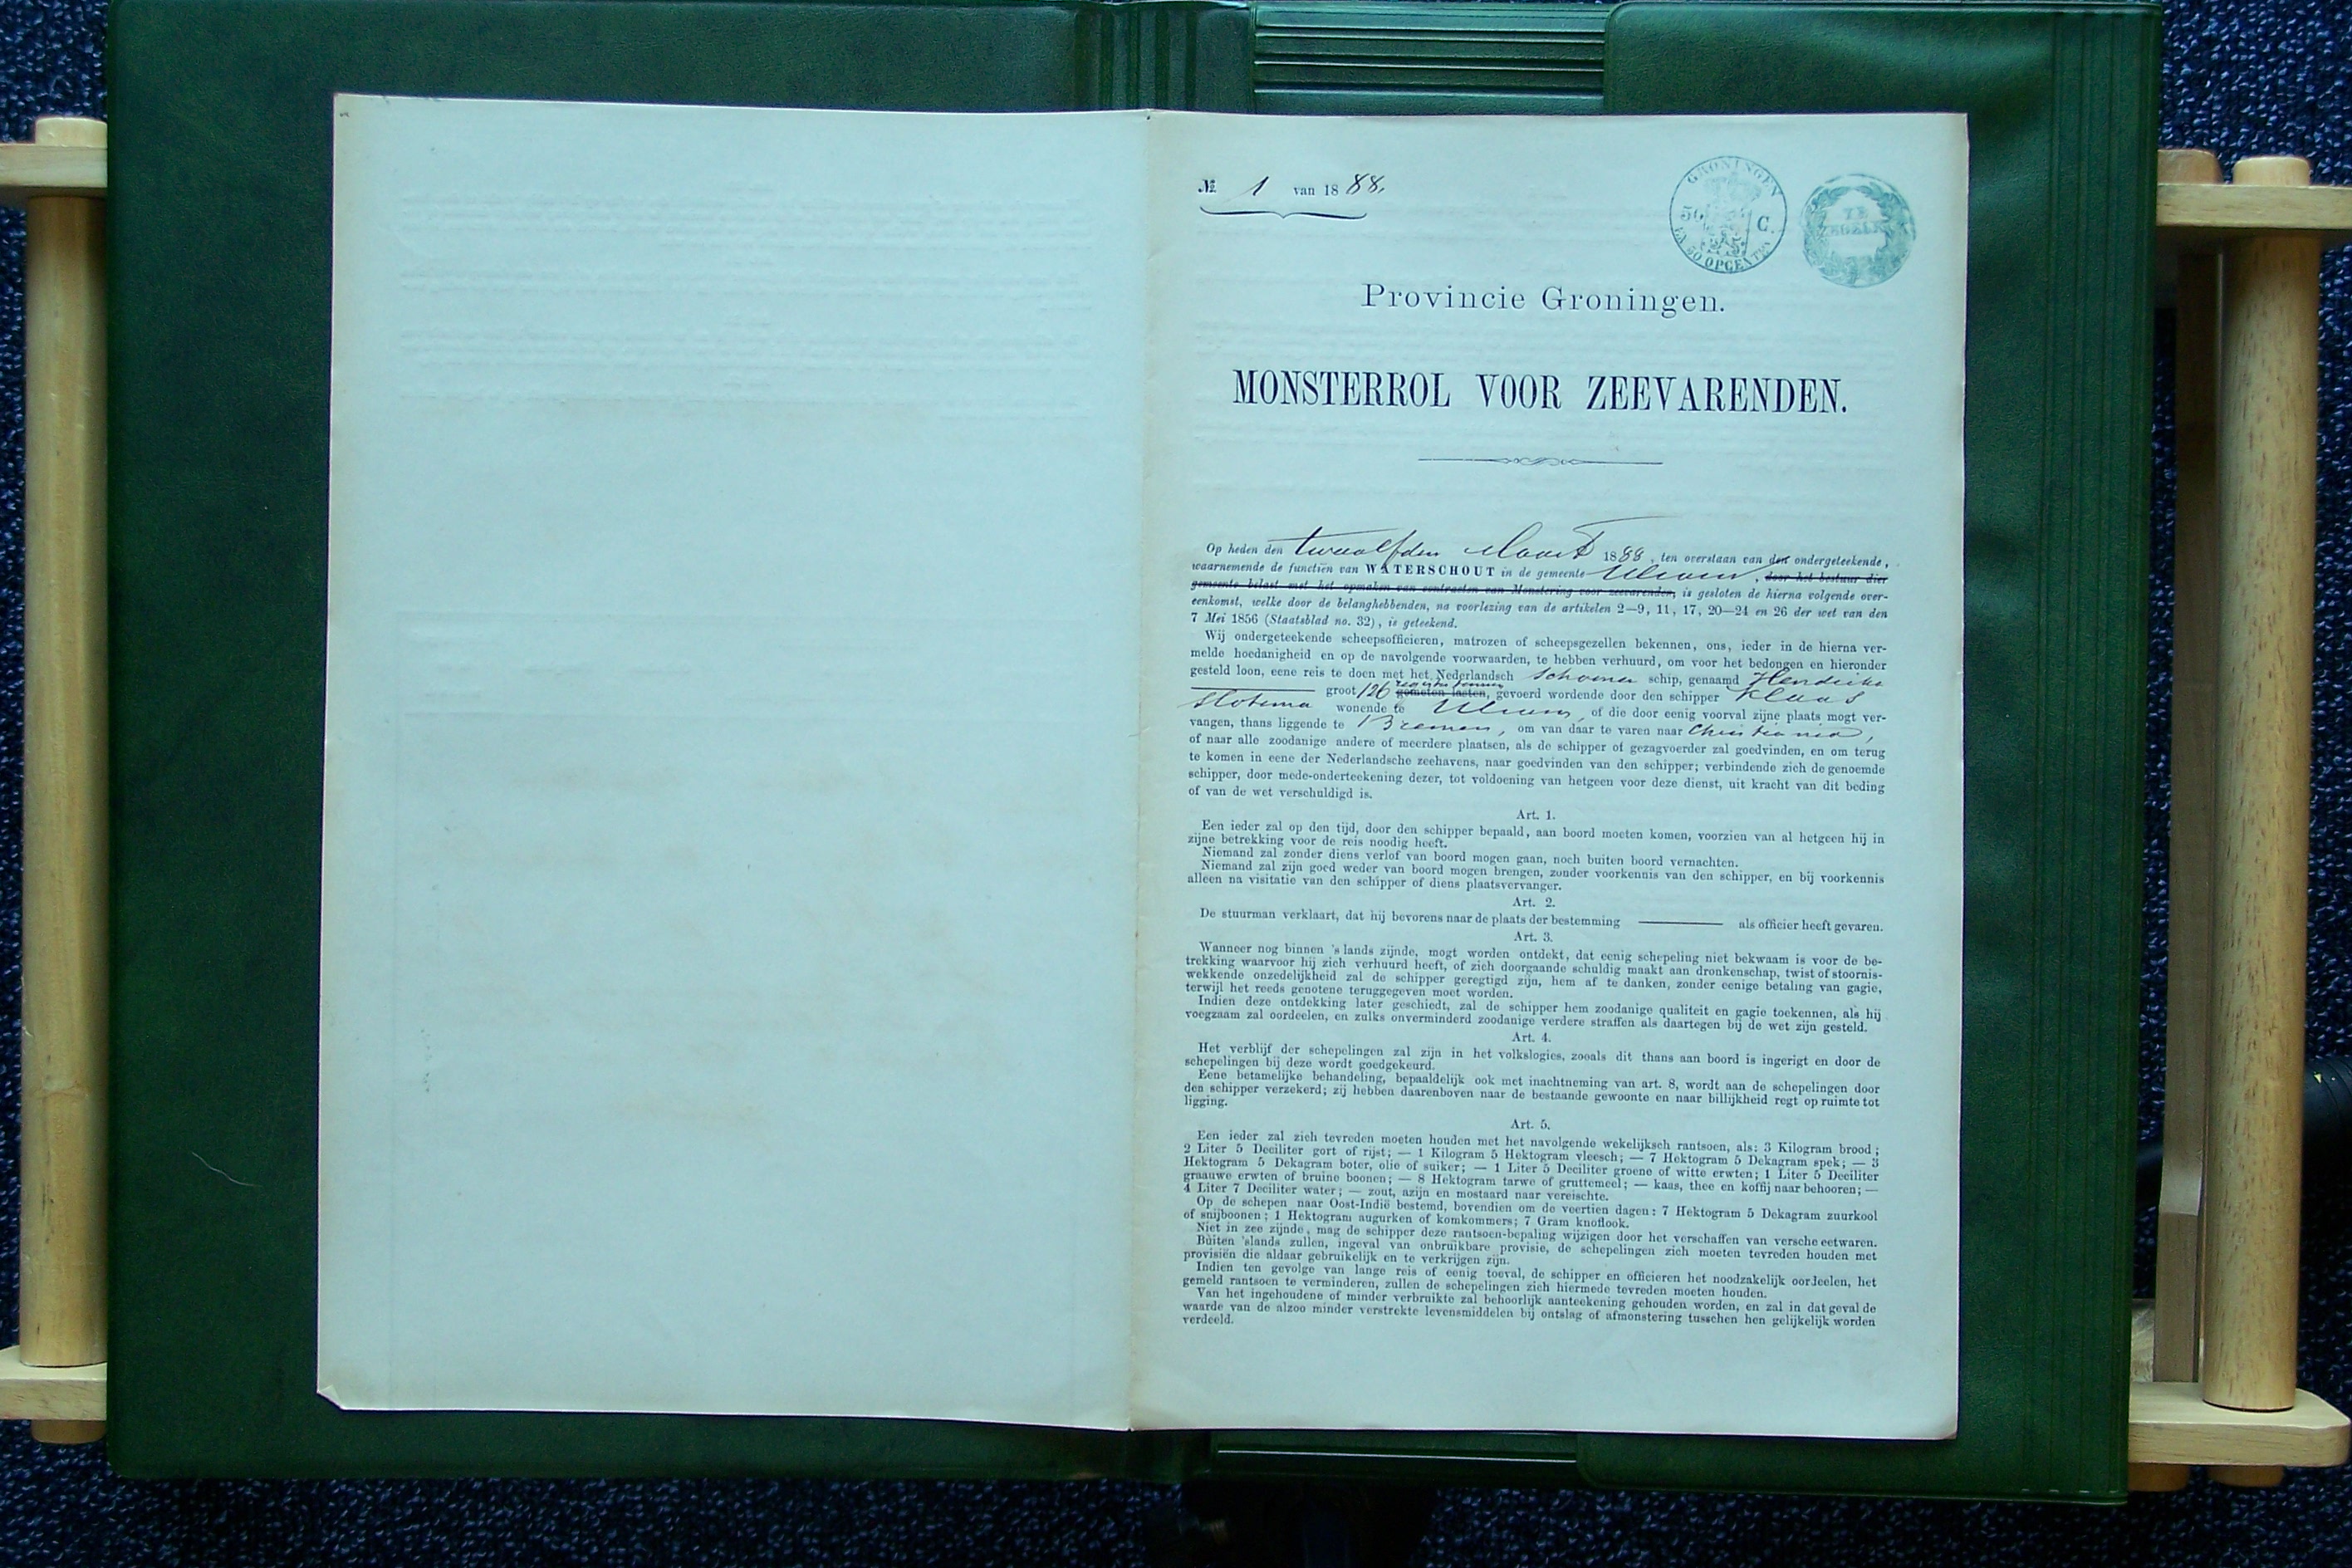 № 1 van 1888.
GRONINGEN
50 C.
EN 50 OPCENTEN
TE
ZEGELEN
Provincie Groningen.
MONSTERROL VOOR ZEEVARENDEN.
Op heden den twaalfden Maart 1888, ten overstaan van den ondergeteekende,
waarnemende de functiën van WATERSCHOUT in de gemeente Ulrum, door het bestuur dier
gemeente belast met het opmaken van contracten van Monstering voor zeevarenden, is gesloten de hierna volgende over-
eenkomst, welke door de belanghebbenden, na voorlezing van de artikelen 2—9, 11, 17, 20—24 en 26 der wet van den
7 Mei 1856 (Staatsblad no. 32), is geteekend.
Wij ondergeteekende scheepsofficieren, matrozen of scheepsgezellen bekennen, ons, ieder in de hierna ver-
melde hoedanigheid en op de navolgende voorwaarden, te hebben verhuurd, om voor het bedongen en hieronder
gesteld loon, eene reis te doen met het Nederlandsch schoener schip, genaamd Hendrika
groot 126 register tonnen gemeten lasten, gevoerd wordende door den schipper Klaas
Slotema wonende te Ulrum, of die door eenig voorval zijne plaats mogt ver-
vangen, thans liggende te Bremen, om van daar te varen naar Christiania,
of naar alle zoodanige andere of meerdere plaatsen, als de schipper of gezagvoerder zal goedvinden, en om terug
te komen in eene der Nederlandsche zeehavens, naar goedvinden van den schipper; verbindende zich de genoemde
schipper, door mede-onderteekening dezer, tot voldoening van hetgeen voor deze dienst, uit kracht van dit beding
of van de wet verschuldigd is.
Art. 1.
Een ieder zal op den tijd, door den schipper bepaald, aan boord moeten komen, voorzien van al hetgeen hij in
zijne betrekking voor de reis noodig heeft.
Niemand zal zonder diens verlof van boord mogen gaan, noch buiten boord vernachten.
Niemand zal zijn goed weder van boord mogen brengen, zonder voorkennis van den schipper, en bij voorkennis
alleen na visitatie van den schipper of diens plaatsvervanger.
Art. 2.
De stuurman verklaart, dat hij bevorens naar de plaats der bestemming ——— als officier heeft gevaren.
Art. 3.
Wanneer nog binnen 's lands zijnde, mogt worden ontdekt, dat eenig schepeling niet bekwaam is voor de be-
trekking waarvoor hij zich verhuurd heeft, of zich doorgaande schuldig maakt aan dronkenschap, twist of stoornis-
wekkende onzedelijkheid zal de schipper geregtigd zijn, hem af te danken, zonder eenige betaling van gagie,
terwijl het reeds genotene teruggegeven moet worden.
Indien deze ontdekking later geschiedt, zal de schipper hem zoodanige qualiteit en gagie toekennen, als hij
voegzaam zal oordeelen, en zulks onverminderd zoodanige verdere straffen als daartegen bij de wet zijn gesteld.
Art. 4.
Het verblijf der schepelingen zal zijn in het volkslogies, zooals dit thans aan boord is ingerigt en door de
schepelingen bij deze wordt goedgekeurd.
Eene betamelijke behandeling, bepaaldelijk ook met inachtneming van art. 8, wordt aan de schepelingen door
den schipper verzekerd; zij hebben daarenboven naar de bestaande gewoonte en naar billijkheid regt op ruimte tot
ligging.
Art. 5.
Een ieder zal zich tevreden moeten houden met het navolgende wekelijksch rantsoen, als: 3 Kilogram brood;
2 Liter 5 Deciliter gort of rijst; — 1 Kilogram 5 Hektogram vleesch; — 7 Hektogram 5 Dekagram spek; — 3
Hektogram 5 Dekagram boter, olie of suiker; — 1 Liter 5 Deciliter groene of witte erwten; 1 Liter 5 Deciliter
graauwe erwten of bruine boonen; — 8 Hektogram tarwe of gruttemeel; — kaas, thee en koffij naar behooren; —
4 Liter 7 Deciliter water; — zout, azijn en mostaard naar vereischte.
Op de schepen naar Oost-Indië bestemd, bovendien om de veertien dagen: 7 Hektogram 5 Dekagram zuurkool
of snijboonen; 1 Hektogram augurken of komkommers; 7 Gram knoflook.
Niet in zee zijnde, mag de schipper deze rantsoen-bepaling wijzigen door het verschaffen van versche eetwaren.
Buiten 'slands zullen, ingeval van onbruikbare provisie, de schepelingen zich moeten tevreden houden met
provisiën die aldaar gebruikelijk en te verkrijgen zijn.
Indien ten gevolge van lange reis of eenig toeval, de schipper en officieren het noodzakelijk oordeelen, het
gemeld rantsoen te verminderen, zullen de schepelingen zich hiermede tevreden moeten houden.
Van het ingehoudene of minder verbruikte zal behoorlijk aanteekening gehouden worden, en zal in dat geval de
waarde van de alzoo minder verstrekte levensmiddelen bij ontslag of afmonstering tusschen hen gelijkelijk worden
verdeeld.